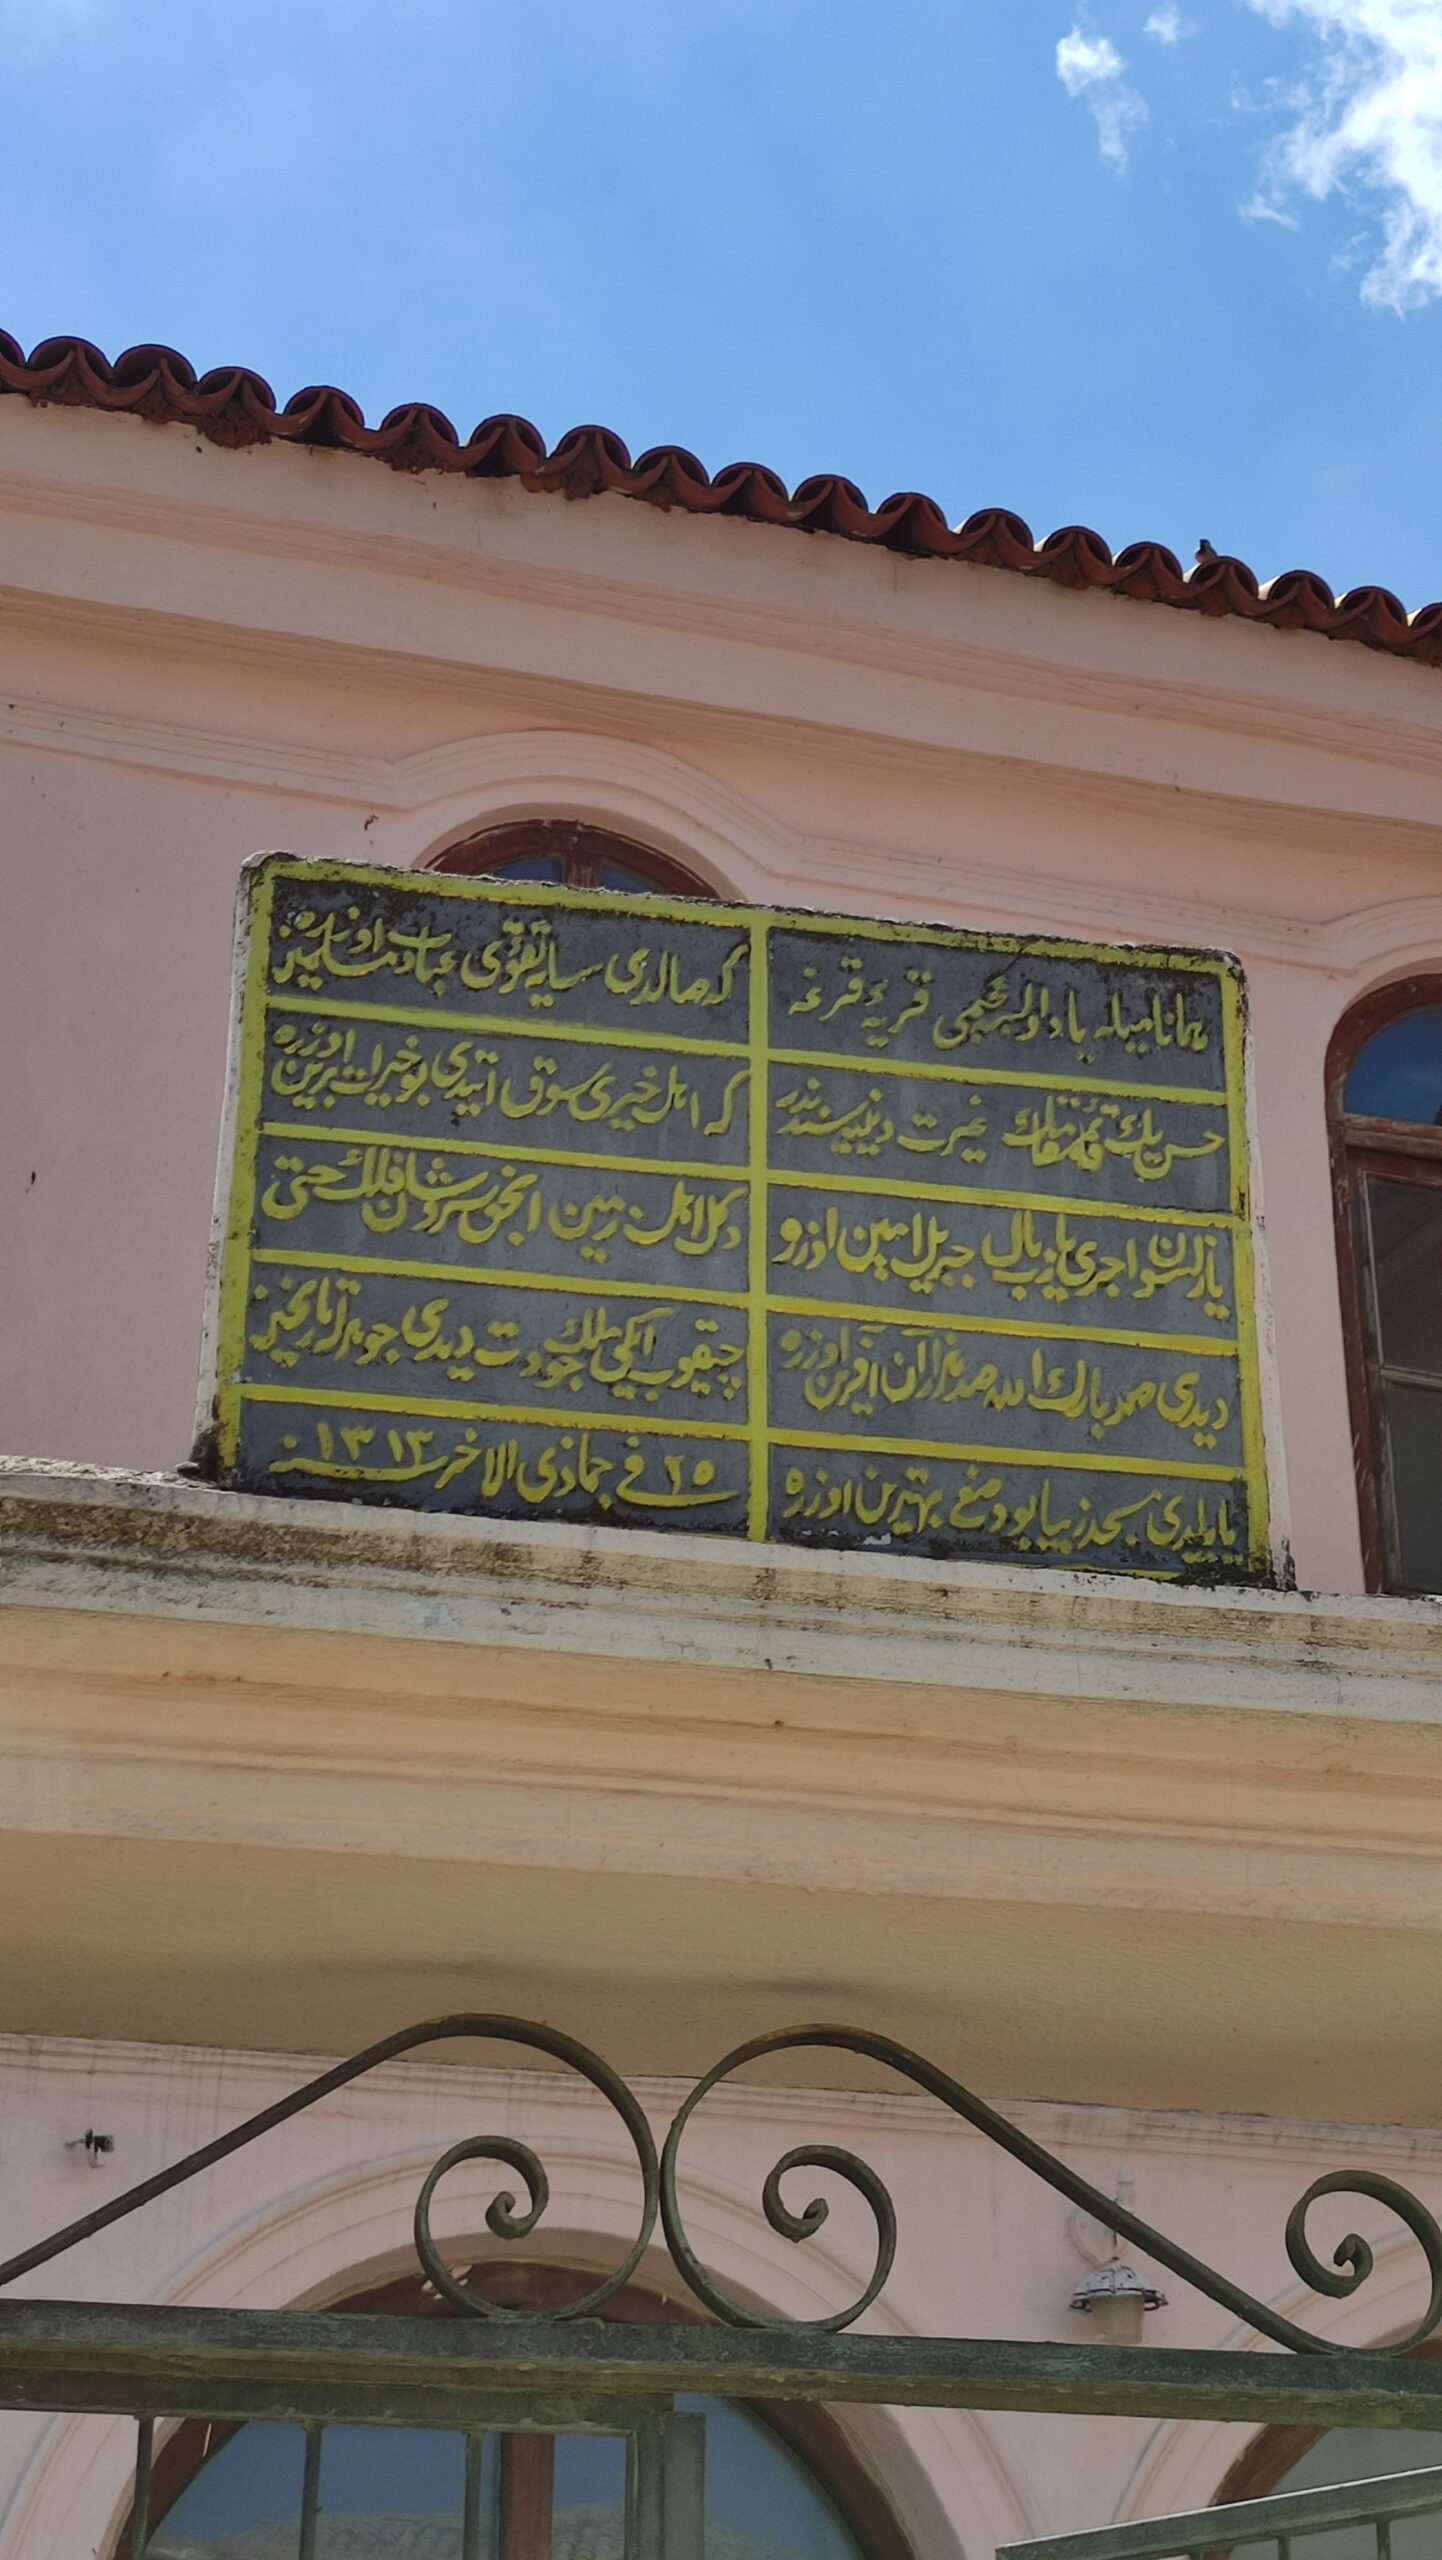 همانا میله یاد اولسه قریهٔ قرغه
که صالدی سایهٔ تقوی عباد مسلمین اوزره
حسن بك غیرت دینیه سندندر
که اهل خیری سوق ایتدی بو خیرات برین اوزره
یازلسون اجری یا رب بال جبریل امین اوزره
دکل اهل زمین انجق سروشان فلك حتی
دیدی صد بارك الله صد هزاران آفرین اوزره
چیقوب ایکی ملك جودت دیدی جوهرله تاریخین
یاپلدی مسجد زیبا بو دمغه بهترین اوزره
٢٥ فی جماذی الاخر سنه ١٣١٣